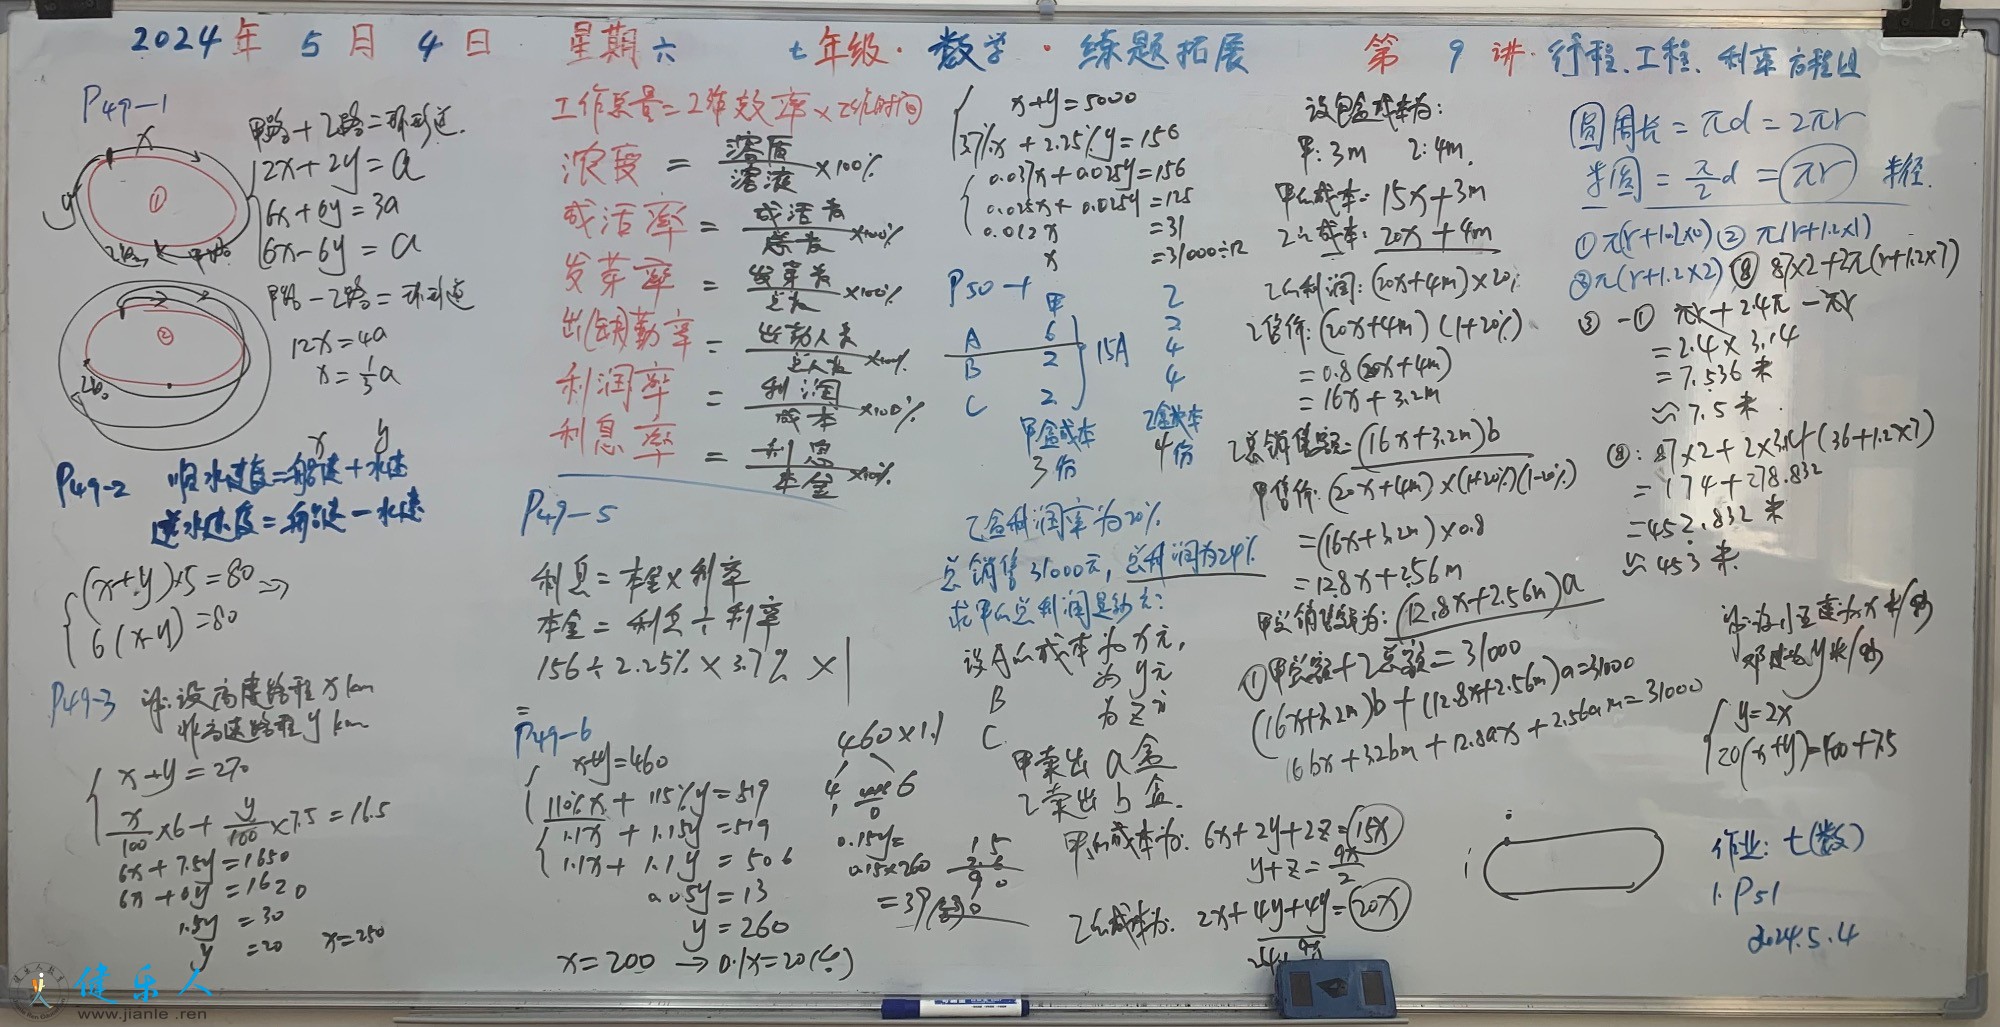 2024年 5月 4日 星期六 七年级·数学·练题拓展 第 9 讲·行程、工程、利率方程组
P49-1
甲路+乙路=环形道.
x
y
①
12x+2y=a
6x+6y=3a
6x-6y=a
②
甲路-乙路=环形道
12x=4a
x=1/3a
x y
P49-2 顺水速度=船速+水速
逆水速度=船速-水速
(x+y)×5=80⇒
6(x-y)=80
P49-3 设高速路程xkm
非高速路程ykm
x+y=270
x/100×6+y/100×7.5=16.5
6x+7.5y=1650
6x+6y=1620
1.5y=30
y=20 x=250
工作总量=工作效率×工作时间
浓度=溶质/溶液×100%
成活率=成活数/总数×100%
发芽率=发芽数/总数×100%
出(缺)勤率=出勤人数/总人数×100%
利润率=利润/成本×100%
利息率=利息/本金×100%
P49-5
利息=本金×利率
本金=利息÷利率
156÷2.25%×3.7%×1
=
P49-6
x+y=460
110%x+115%y=519
1.1x+1.15y=519
1.1x+1.1y=506
0.05y=13
y=260
x=200→0.1x=20
460×1.1
0.15y=
0.15×260
=39
x+y=5000
3.7%x+2.25%y=156
0.037x+0.025y=156
0.025x+0.025y=125
0.012x=31
x=31000÷12
P50-1
甲 乙
A 6 2
B 2 4
C 2 4
15A
甲盒成本 乙盒成本
3份 4份
乙盒利润率为20%.
总销售31000元,总利润为24%
求甲的总利润是多少元?
设A的成本为x元,
B 为y元
C 为z元
甲卖出a盒
乙卖出b盒.
甲的成本为:6x+2y+2z=15x
y+z=9x/2
乙的成本为:2x+4y+4y=20x
设包盒成本为:
甲:3m 乙:4m.
甲的成本:15x+3m
乙的成本:20x+4m
乙的利润:(20x+4m)×20%
乙售价:(20x+4m)(1+20%)
=0.8(20x+4m)
=16x+3.2m
乙总销售额=(16x+3.2m)b
甲售价:(20x+4m)×(1+20%)(1-20%)
=(16x+3.2m)×0.8
=12.8x+2.56m
甲总销售额为:(12.8x+2.56m)a
①甲总额+乙总额=31000
(16x+3.2m)b+(12.8x+2.56m)a=31000
16bx+3.2bm+12.8ax+2.56am=31000
圆周长=πd=2πr
半圆=π/2d=πr 半径.
①π(r+1.2×0)②π(r+1.2×1)
③π(r+1.2×2)⑧87×2+2π(r+1.2×7)
③-① πr+2.4π-πr
=2.4×3.14
=7.536米
≈7.5米.
⑧:87×2+2×3.14(36+1.2×7)
=174+278.832
=452.832米
≈453米.
y=2x
20(x+y)=400+75
作业:七(数)
1.P51
2024.5.4
健乐人
www.jianle.ren